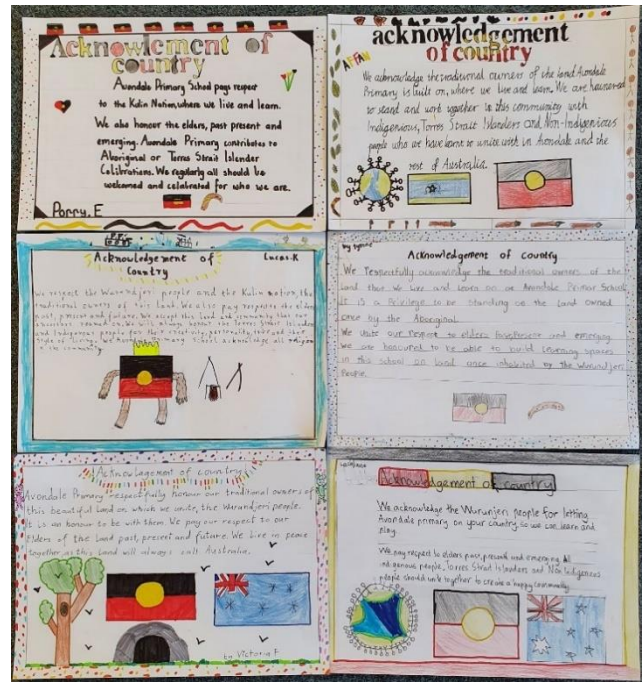 Acknowlement of
country
Avondale Primary School pays respect
to the Kulin Nation, where we live and learn.
We also honour the elders, past present and
emerging. Avondale Primary contributes to
Aboriginal or Torres Strait Islender
Celibrations. We regularly all should be
welcomed and celebrated for who we are.
Parry. E
acknowledgement
of country
AFFAN
We acknowledge the traditional owners of the land Avondale
Primary is built on, where we live and learn. We are honoured
to stand and work together in this community with
Indigenious, Torres Strait Islanders and Non-Indigenious
people who we have learnt to unite with in Avondale and the
rest of Australia.
Acknowledgement of
Country
Lucas.K
We respect the Wurundjeri people and the Kulin nation, the
traditional owners of this land. We also pay respects the elders
past, present and future. We accept this land and
ancestors. We will always honour the Torres Strait Islanders
and Indigenous people for their creativity, personality and their
style of living.
in the community
Acknowledgement of country
We respectfully acknowledge the traditional owners of the
land that we live and learn on as Avondale Primary School.
It is a Privilege to be standing on the land owned
once by the Aboriginal.
We unite our respect to elders Past, Present and emerging.
We are honoured to be able to build learning spaces
in this school on land once inhabited by the Wurundjeri
People.
Acknowlagement of country
Avondale Primary respectfully honour our traditional owners of
this beautiful land on which we unite, the Wurandjeri people.
It is an honour to be with them. We pay our respect to our
Elders of the land past, present and future. We live in peace
together as this land will always call Australia.
by Victoria P
Acknowledgement of country
We acknowledge the Wurunjeri people for letting
Avondale primary on your country, so we can learn and
play.
We pay respect to elders past, present and emerging. All
indigenous people, Torres Strait Islanders and Non Indigenous
people should unite together to create a happy community.